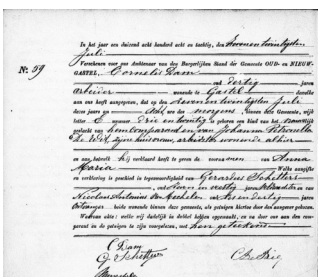 In het jaar een duizend acht honderd acht en tachtig, den zeven en twintigsten
Juli
Verscheen voor ons Ambtenaar van den Burgerlijken Stand der Gemeente OUD- en NIEUW-
Nº. 59
GASTEL, Cornelis Dam
oud dertig jaren
arbeider wonende te Gastel dewelke
aan ons heeft aangegeven, dat op den zeven en twintigsten Juli
dezes jaars ten ure des morgens, binnen deze Gemeente, wijk
letter nummer drie en twintig is geboren een kind van het vrouwelijk
geslacht van hem comparant en van Johanna Petronella
De Wit, zijne huisvrouw, arbeidster wonende alhier
en aan hetwelk hij verklaard heeft te geven de voornamen van Anna
Maria
en verklaring is geschied in tegenwoordigheid van Gerardus Schetters
, oud zeven en jaren en van
Nicolaas Antonius van Mechelen oud zes en dertig jaren
ontvanger beide wonende binnen deze gemeente, als getuigen hiertoe door den aangever gekozen.
Waarvan akte: welke wij dadelijk in dubbel hebben opgemaakt, en na door ons aan den com-
parant en de getuigen te zijn voorgelezen, met hen geteekend.
C Dam
G Schetters